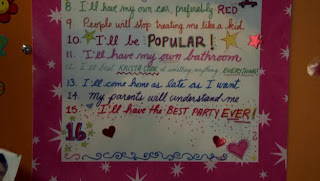 8. I'll have my own car, preferebly RED
9. People will stop treating me like a kid
10. I'll be POPULAR!
11. I'll have my own bathroom
12. I'll beat KRISTA COOK at something, anything, EVERYTHING!
13. I'll come home as late as I want
14. My parents will understand me
15. I'll have the BEST PARTY EVER!
16